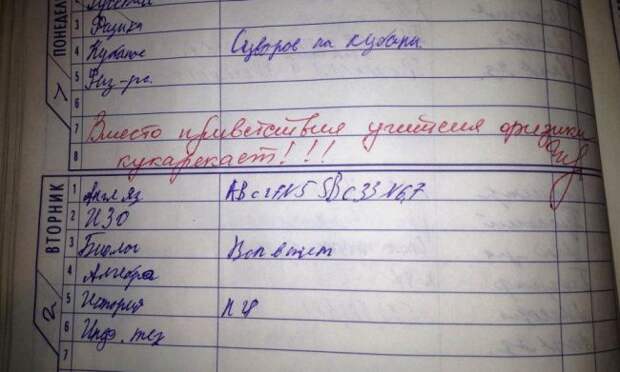 ПОНЕДЕЛ
3 Физика
4 Кубанов Суворов на Кубани.
5 Физ-ра.
6
7 Вместо приветствия учителя физики
8 кукарекает!!!
ВТОРНИК
1 Англ яз АВ с 27 N5 SB с 33 N6,7
2 ИЗО
3 Биолог Воп в тет
4 Алгебра
5 История п 4
6 Инф. тех
7